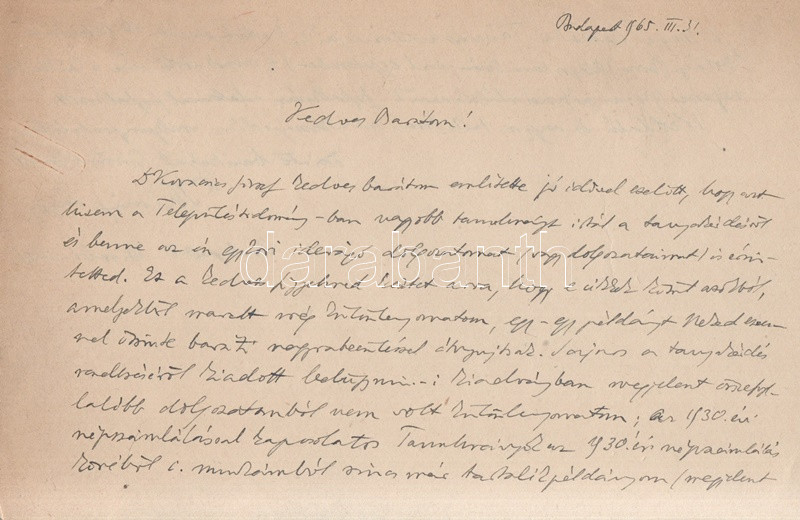 Budapest 1965. III. 31.
Kedves Barátom!
Dr Kovacsics József kedves barátom említette jó idővel ezelőtt, hogy azt
hiszem a Településtudomány-ban nagyobb tanulmányt írtál a tanyakérdésről
és benne az én egykori idevágó dolgozatomat (vagy dolgozataimat) is érin-
tetted. Ez a kedves figyelmed késztet arra, hogy e cikkek közül azokból,
amelyekből maradt még különlenyomatom, egy-egy példányt Neked ezen-
nel őszinte baráti nagyrabecsüléssel átnyújtsak. Sajnos a tanyakérdés
rendezéséről kiadott belügymin.-i kiadványban megjelent összefog-
lalóbb dolgozatomból nem volt különlenyomatom; az 1930. évi
népszámlálással kapcsolatos Tanulmányok az 1930. évi népszámlálás
köréből c. munkámból sincs már tartalékpéldányom (megjelent
darabanth.com